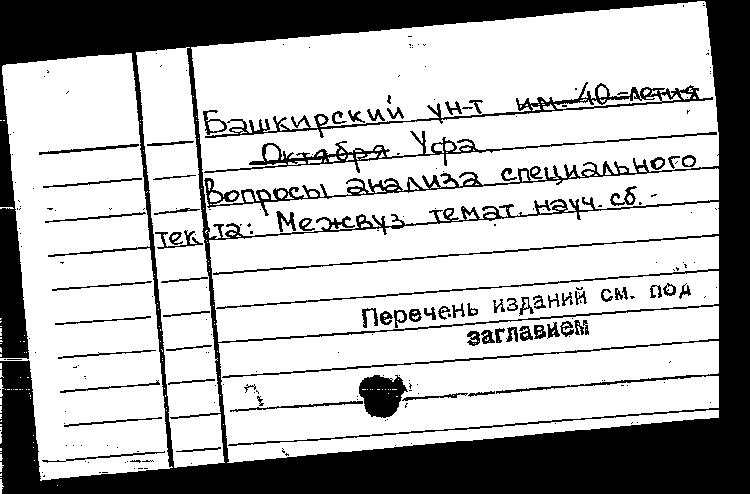 Башкирский ун-т им. 40-летия
Октября. Уфа.
Вопросы анализа специального
текста: Межвуз. темат. науч. сб. -
Перечень изданий см. под
заглавием